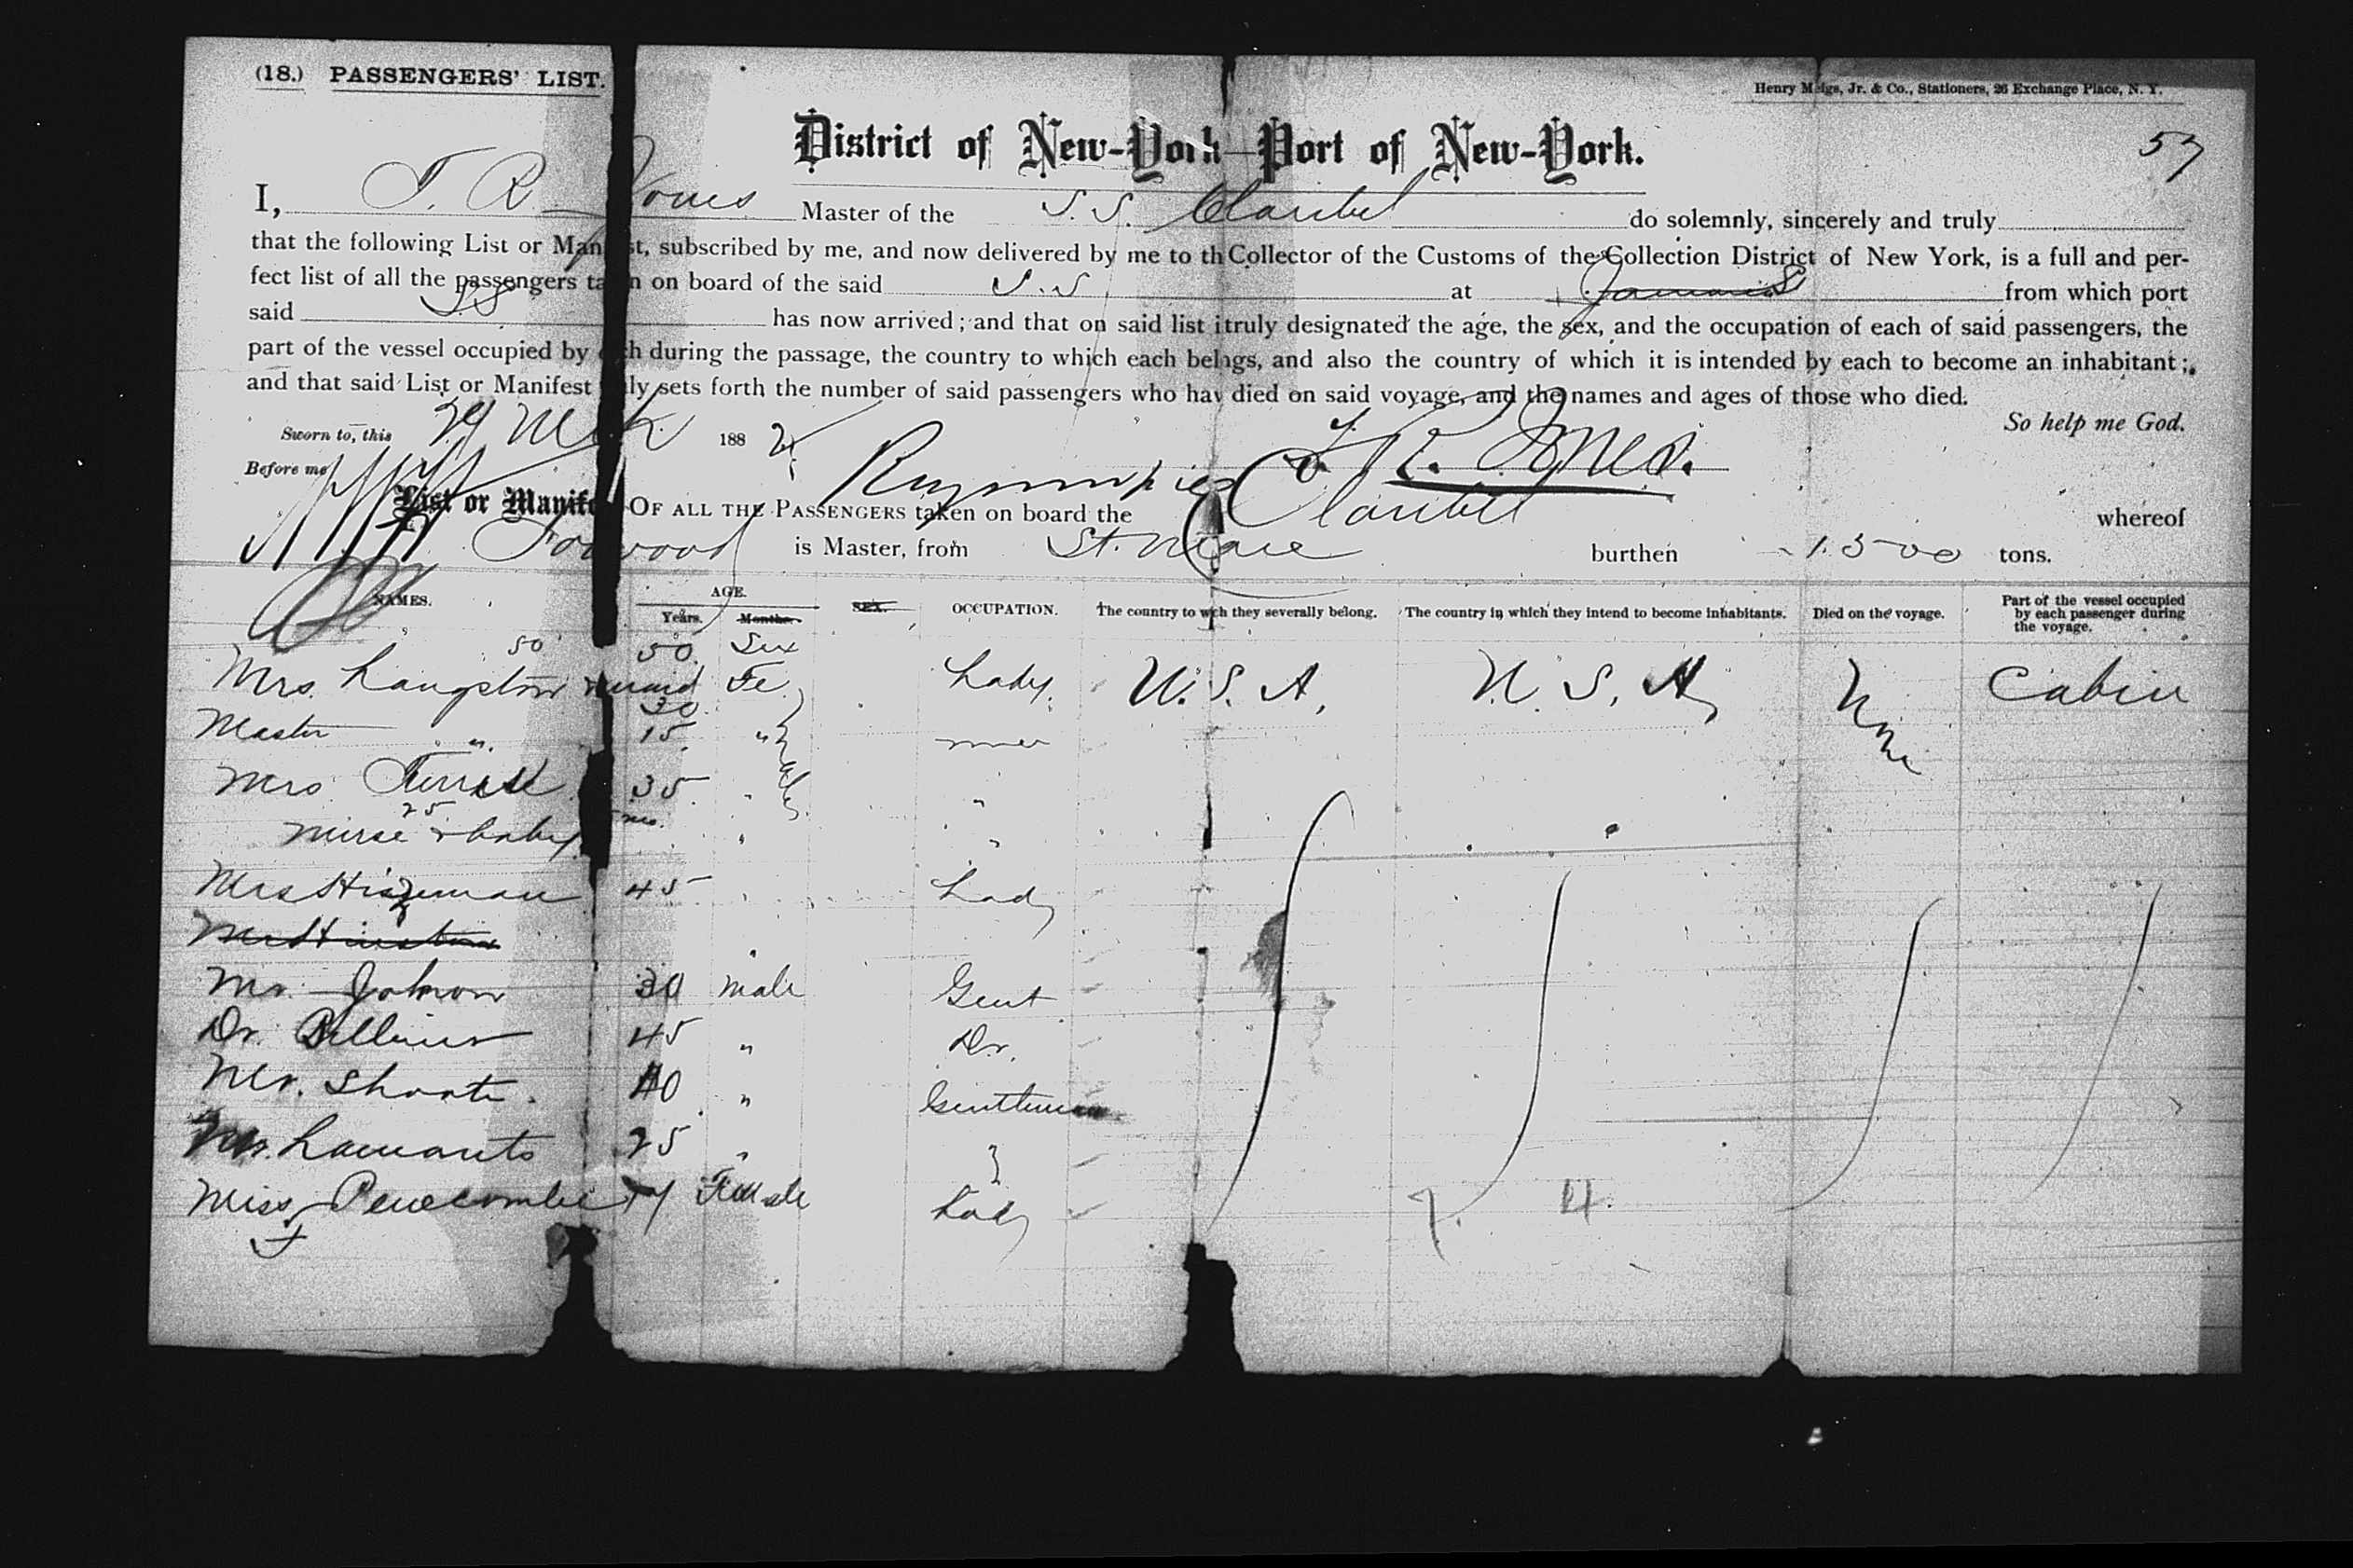 (18.) PASSENGERS' LIST.
Henry Meigs, Jr. & Co., Stationers, 26 Exchange Place, N. Y.
57
District of New-York—Port of New-York.
I, T. R. Jones Master of the S.S. Claribel do solemnly, sincerely and truly
that the following List or Man st, subscribed by me, and now delivered by me to th Collector of the Customs of the Collection District of New York, is a full and per-
fect list of all the passengers ta n on board of the said S.S at from which port
said SS has now arrived; and that on said list i truly designated the age, the sex, and the occupation of each of said passengers, the
part of the vessel occupied by ch during the passage, the country to which each belngs, and also the country of which it is intended by each to become an inhabitant;
and that said List or Manifest uly sets forth the number of said passengers who hav died on said voyage, and the names and ages of those who died.
So help me God.
Sworn to, this 29 Mch 1882
T R. Jones.
Before me
List or Manife OF ALL THE PASSENGERS taken on board the Claribel whereof
Forwood is Master, from St. Marc burthen 1.500 tons.
NAMES. AGE. Years. Months. SEX. OCCUPATION. The country to wch they severally belong. The country in which they intend to become inhabitants. Died on the voyage. Part of the vessel occupied by each passenger during the voyage.
50 50 Sex
Mrs. Langston & maid Fe. Lady. U.S.A. U.S.A. Cabin
30
Master " 15 "
Mrs 35 "
25 mo.
nurse & baby " "
Mrs 45 " Lady
Mr. Johnson 30 male Gent
Dr. 45 " Dr.
Mr. Shoate 40 " Gentleman
Mr. 25 "
Miss Penecombe 17 Female Lady
7. 4.